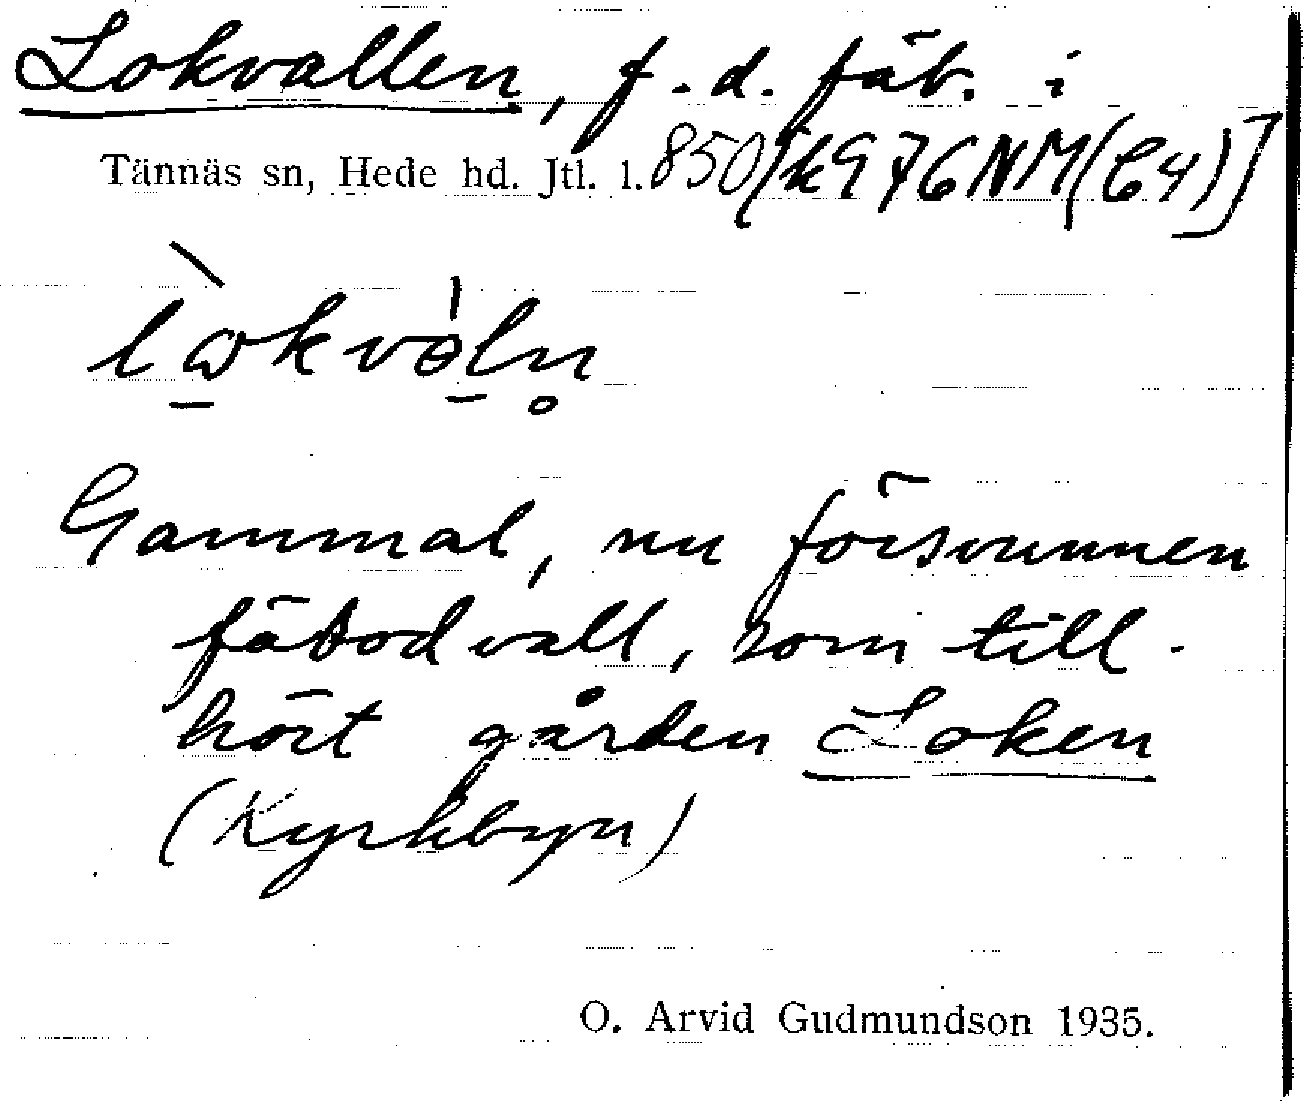 Lokvallen, f.d. fäb. i
Tännäs sn, Hede hd. Jtl. l. 850 [k976NM(C4)]
Gammal, nu försvunnen
fäbodvall, som till-
hört gården Loken
(Kyrkbyn)
O. Arvid Gudmundson 1935.